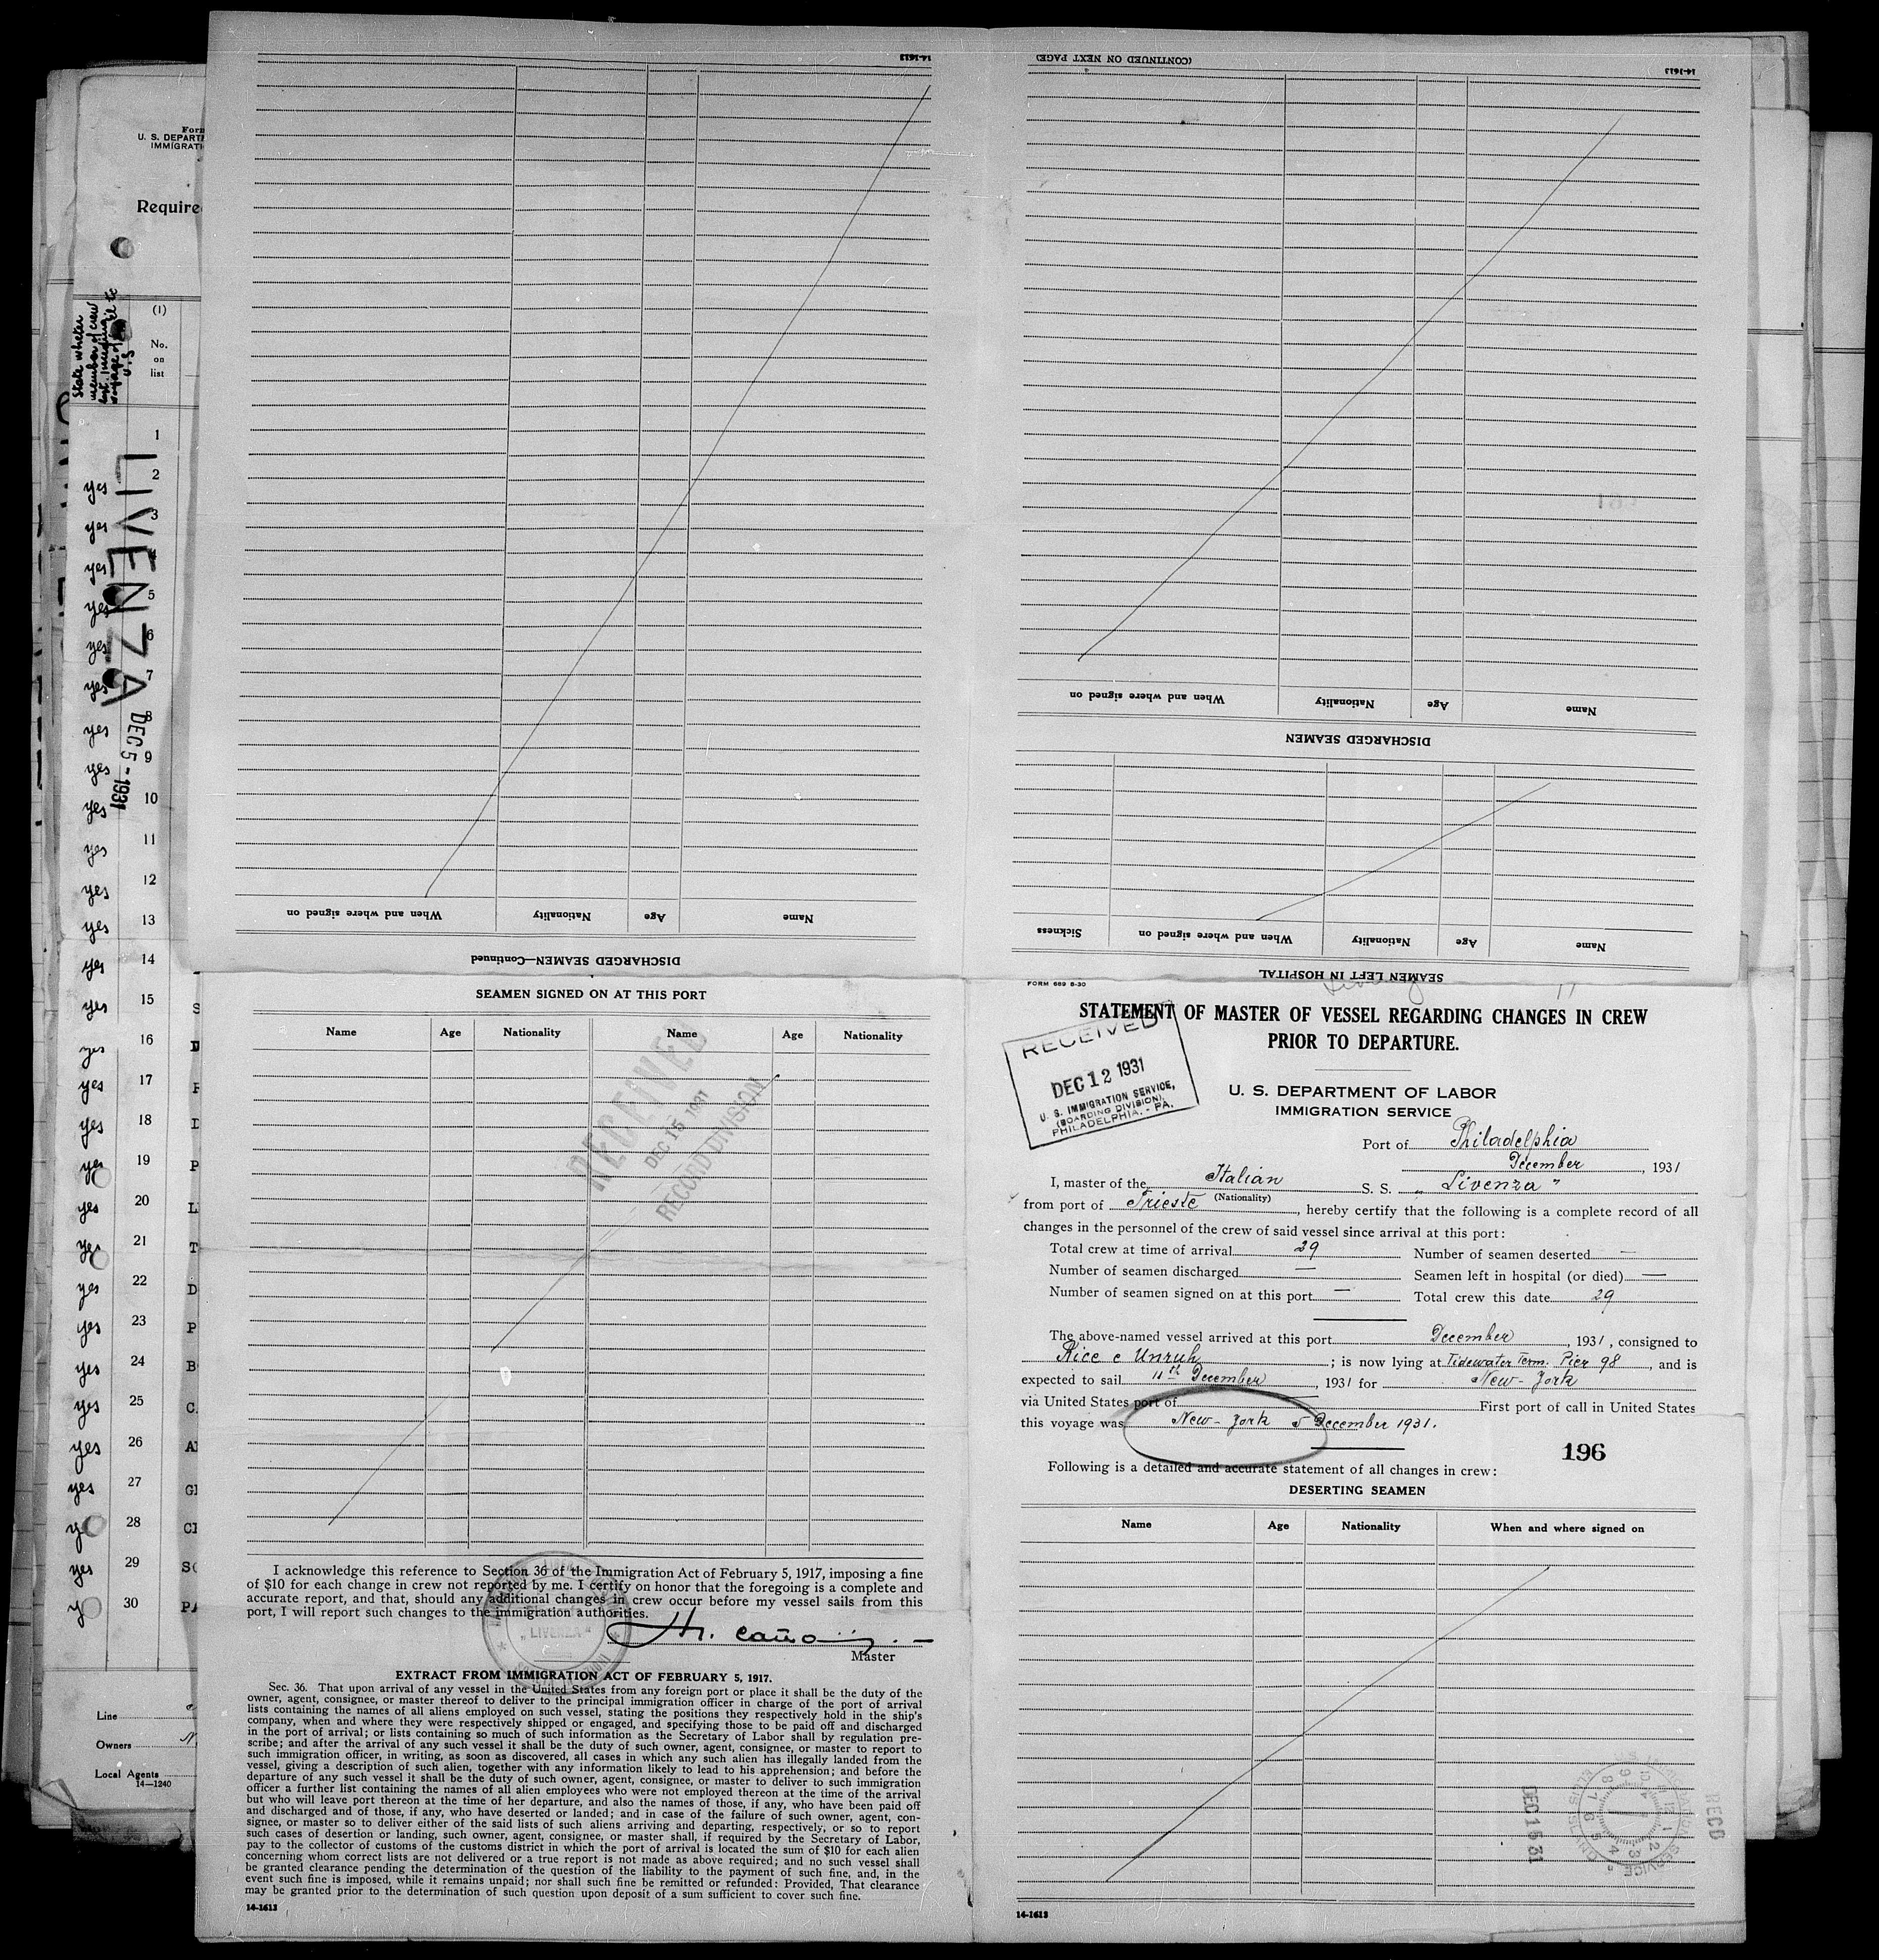 Form
U. S. DEPART
IMMIGRATI
Require
State wheter
member of crew
voyage of
U.S
(1)
No.
on
list
1
2
yes
3
yes
4
yes
5
yes
6
yes
7
yes
8
yes
9
yes
10
yes
11
yes
12
yes
13
yes
14
yes
15
yes
16
yes
17
yes
18
yes
19
yes
20
yes
21
yes
22
yes
23
yes
24
yes
25
yes
26
yes
27
yes
28
29
yes
30
LIVENZA
DEC 5 - 1931
Line
Owners
Local Agents
14—1240
14-1613
When and where signed on Nationality Age Name
DISCHARGED SEAMEN—Continued
14-1613
(CONTINUED ON NEXT PAGE)
When and where signed on Nationality Age Name
DISCHARGED SEAMEN
Sickness When and where signed on Nationality Age Name
SEAMEN LEFT IN HOSPITAL
SEAMEN SIGNED ON AT THIS PORT
Name Age Nationality Name Age Nationality
RECEIVED
DEC 15 1931
RECORD DIVISION
I acknowledge this reference to Section 36 of the Immigration Act of February 5, 1917, imposing a fine
of $10 for each change in crew not reported by me. I certify on honor that the foregoing is a complete and
accurate report, and that, should any additional changes in crew occur before my vessel sails from this
port, I will report such changes to the immigration authorities.
"LIVENZA"
Master
EXTRACT FROM IMMIGRATION ACT OF FEBRUARY 5, 1917.
Sec. 36. That upon arrival of any vessel in the United States from any foreign port or place it shall be the duty of the
owner, agent, consignee, or master thereof to deliver to the principal immigration officer in charge of the port of arrival
lists containing the names of all aliens employed on such vessel, stating the positions they respectively hold in the ship's
company, when and where they were respectively shipped or engaged, and specifying those to be paid off and discharged
in the port of arrival; or lists containing so much of such information as the Secretary of Labor shall by regulation pre-
scribe; and after the arrival of any such vessel it shall be the duty of such owner, agent, consignee, or master to report to
such immigration officer, in writing, as soon as discovered, all cases in which any such alien has illegally landed from the
vessel, giving a description of such alien, together with any information likely to lead to his apprehension; and before the
departure of any such vessel it shall be the duty of such owner, agent, consignee, or master to deliver to such immigration
officer a further list containing the names of all alien employees who were not employed thereon at the time of the arrival
but who will leave port thereon at the time of her departure, and also the names of those, if any, who have been paid off
and discharged and of those, if any, who have deserted or landed; and in case of the failure of such owner, agent, con-
signee, or master so to deliver either of the said lists of such aliens arriving and departing, respectively, or so to report
such cases of desertion or landing, such owner, agent, consignee, or master shall, if required by the Secretary of Labor,
pay to the collector of customs of the customs district in which the port of arrival is located the sum of $10 for each alien
concerning whom correct lists are not delivered or a true report is not made as above required; and no such vessel shall
be granted clearance pending the determination of the question of the liability to the payment of such fine, and, in the
event such fine is imposed, while it remains unpaid; nor shall such fine be remitted or refunded: Provided, That clearance
may be granted prior to the determination of such question upon deposit of a sum sufficient to cover such fine.
14-1613
FORM 689 6-30
STATEMENT OF MASTER OF VESSEL REGARDING CHANGES IN CREW
PRIOR TO DEPARTURE.
RECEIVED
DEC 12 1931
U. S. IMMIGRATION SERVICE,
(BOARDING DIVISION),
PHILADELPHIA, - PA.
U. S. DEPARTMENT OF LABOR
IMMIGRATION SERVICE
Port of Philadelphia
December, 1931
I, master of the Italian S. S. "Livenza"
(Nationality)
from port of Trieste, hereby certify that the following is a complete record of all
changes in the personnel of the crew of said vessel since arrival at this port:
Total crew at time of arrival 29 Number of seamen deserted —
Number of seamen discharged — Seamen left in hospital (or died) —
Number of seamen signed on at this port — Total crew this date 29
The above-named vessel arrived at this port December, 1931, consigned to
Rice e Unruh; is now lying at Tidewater Term. Pier 98, and is
expected to sail 11th December, 1931 for New-York
via United States port of First port of call in United States
this voyage was New-York 5 December 1931.
196
Following is a detailed and accurate statement of all changes in crew:
DESERTING SEAMEN
Name Age Nationality When and where signed on
DEC 15 31
RECD
14-1613